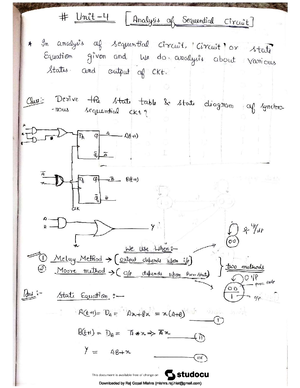 # Unit-4 [Analysis of Sequential Circuit]
* In analysis of sequential circuit, 'Circuit' or state
Equation given and we do analysis about various
states and output of ckt.
Ques: Derive the state table & state diagram of synchro-
-nous sequential ckt?
A
B
Y
We use when:-
1 Melay Method → output depends upon i/p
2 Moore method → o/p depends upon
two methods
State Equation:-
A(t+1) = DA = Ax+Bx = x(A+B)
B(t+1) = DB =
Y = AB+x
This document is available free of charge on
studocu
Downloaded by Raj Gopal Mishra